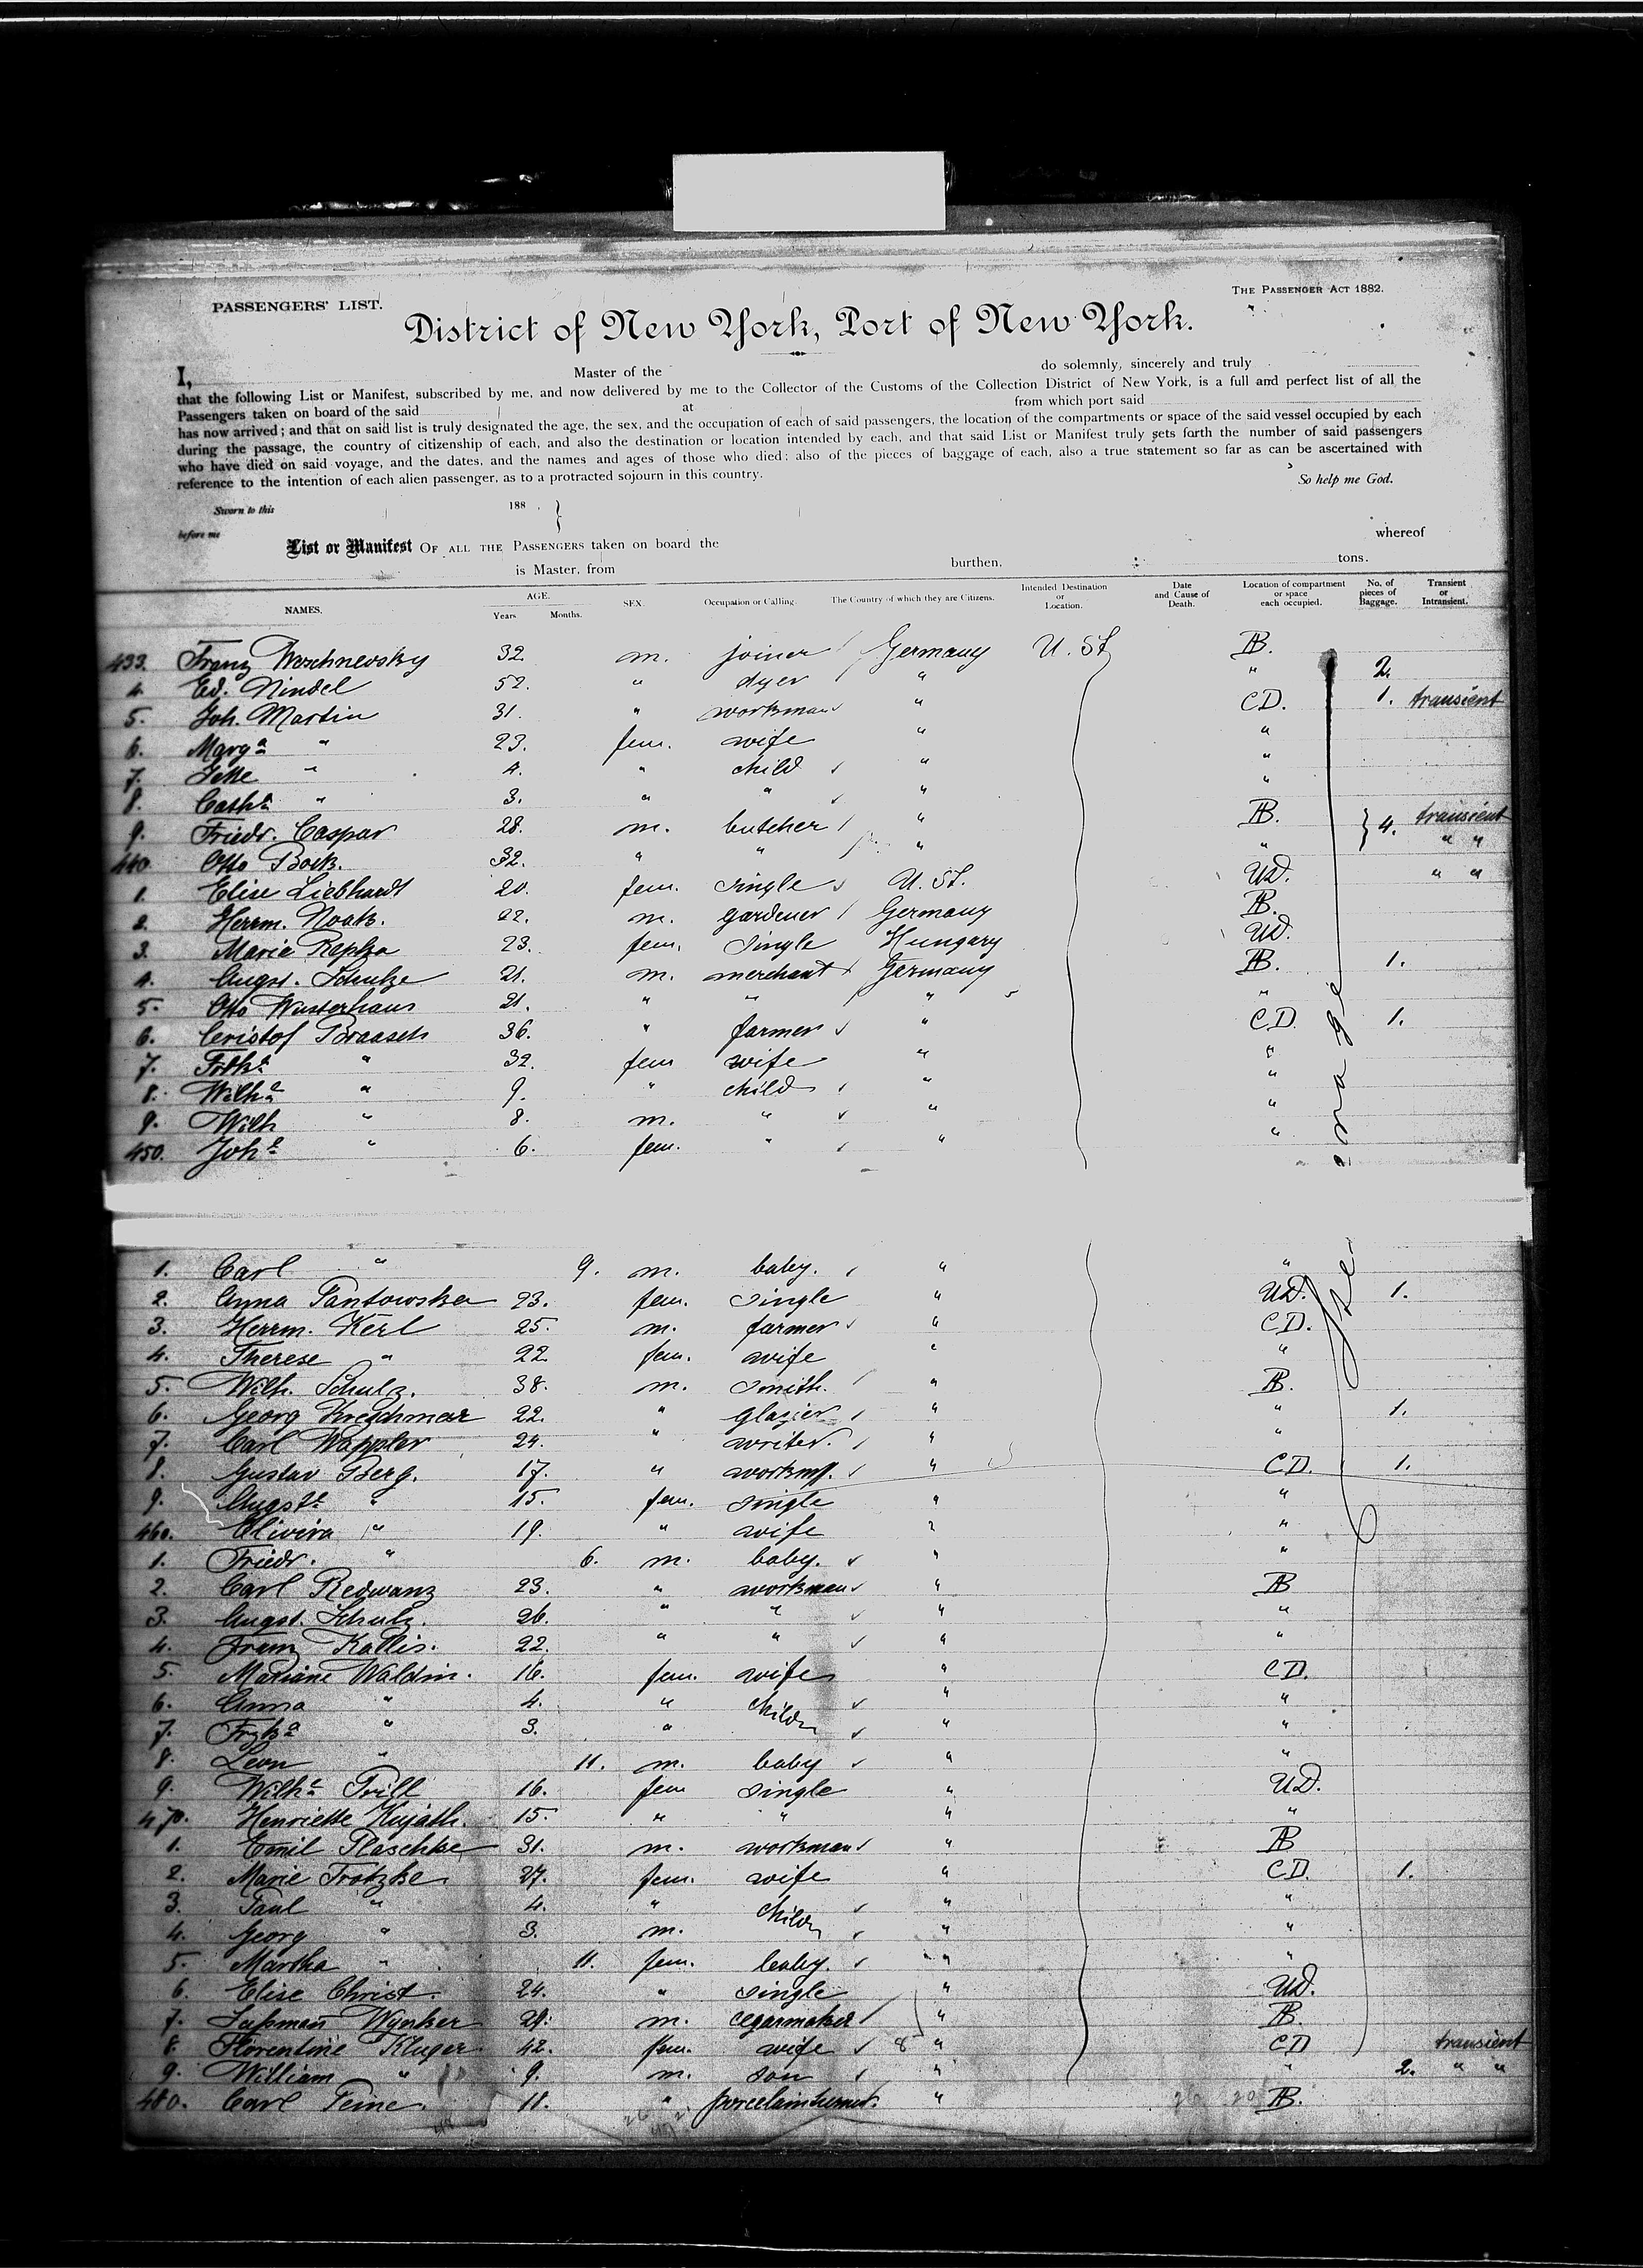 PASSENGERS' LIST.
THE PASSENGER ACT 1882.
District of New York, Port of New York.
I, Master of the do solemnly, sincerely and truly
that the following List or Manifest, subscribed by me, and now delivered by me to the Collector of the Customs of the Collection District of New York, is a full and perfect list of all the
Passengers taken on board of the said at from which port said
has now arrived; and that on said list is truly designated the age, the sex, and the occupation of each of said passengers, the location of the compartments or space of the said vessel occupied by each
during the passage, the country of citizenship of each, and also the destination or location intended by each, and that said List or Manifest truly sets forth the number of said passengers
who have died on said voyage, and the dates, and the names and ages of those who died; also of the pieces of baggage of each, also a true statement so far as can be ascertained with
reference to the intention of each alien passenger, as to a protracted sojourn in this country. So help me God.
Sworn to this 188 .
before me whereof
List or Manifest OF ALL THE PASSENGERS taken on board the
is Master, from burthen, tons.
NAMES. AGE. Years Months. SEX. Occupation or Calling. The Country of which they are Citizens. Intended Destination or Location. Date and Cause of Death. Location of compartment or space each occupied. No. of pieces of Baggage. Transient or Intransient.
433. Franz 32 m. joiner Germany U. St. AB.
4. Ed. Nindel 52. " dyer " " 2.
5. Joh. Martin 31. " workman " CD. 1. transient
6. Marg.a " 23. fem. wife " "
7. Jette " 4. " child " "
8. Cath.a " 3. " " " "
9. Friedr. Caspar 28. m. butcher " AB. 4. transient
440. Otto Bock. 32. " " " " " "
1. Elise Liebhardt 20. fem. single U. St. UD. " "
2. Herrm. Noak. 22. m. gardener Germany AB.
3. Maria Repka 23. fem. single Hungary UD.
4. Augst. Schulze 21. m. merchant Germany AB. 1.
5. Otto Wusterhaus 21. " " " "
6. Cristof Braasch 36. " farmer " CD. 1.
7. " 32. fem wife " "
8. Wilh.e " 9. " child " "
9. Wilh " 8. m. " " "
450. Joh.e " 6. fem. " " "
1. Carl " 9. m. baby. " "
2. Anna Pantowska 23. fem. single " UD. 1.
3. Herrm. Kerl 25. m. farmer " CD.
4. Therese " 22. fem. wife " "
5. Wilh. Schulz. 38. m. smith. " AB.
6. Georg Kretschmar 22. " glazier " " 1.
7. Carl Wappler 24. " writer. " "
8. Gustav Berg. 17. " workm. " CD. 1.
9. Augste " 15. fem. single " "
460. Elivira " 19. " wife " "
1. Friedr. " 6. m. baby. " "
2. Carl Redwanz 23. " workman " AB
3. Augst. Schulz. 26. " " " "
4. Franz Kallis. 22. " " " "
5. Mariane Waldin. 16. fem. wife " CD.
6. Anna " 4. " childn " "
7. " 3. " " "
8. Leon " 11. m. baby " "
9. Wilh.e Prill 16. fem single " UD.
470. Henriette Kujath. 15. " " " "
1. Emil Plaschke 31. m. workman " AB
2. Marie Trotzke 27. fem. wife " CD. 1.
3. Paul " 4. " childn " "
4. Georg " 3. m. " "
5. Martha " 11. fem. baby. " "
6. Elise Christ. 24. " single " UD.
7. 24. m. cegarmaker " AB.
8. Florentine Kluger 42. fem. wife 8 " CD transient
9. William " 9. m. son " " 2. " "
480. Carl Peine. 11. " porcelainturner. " AB.